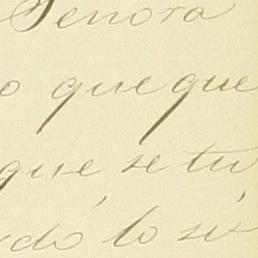 Señora
o que que
que se tu
dó lo si